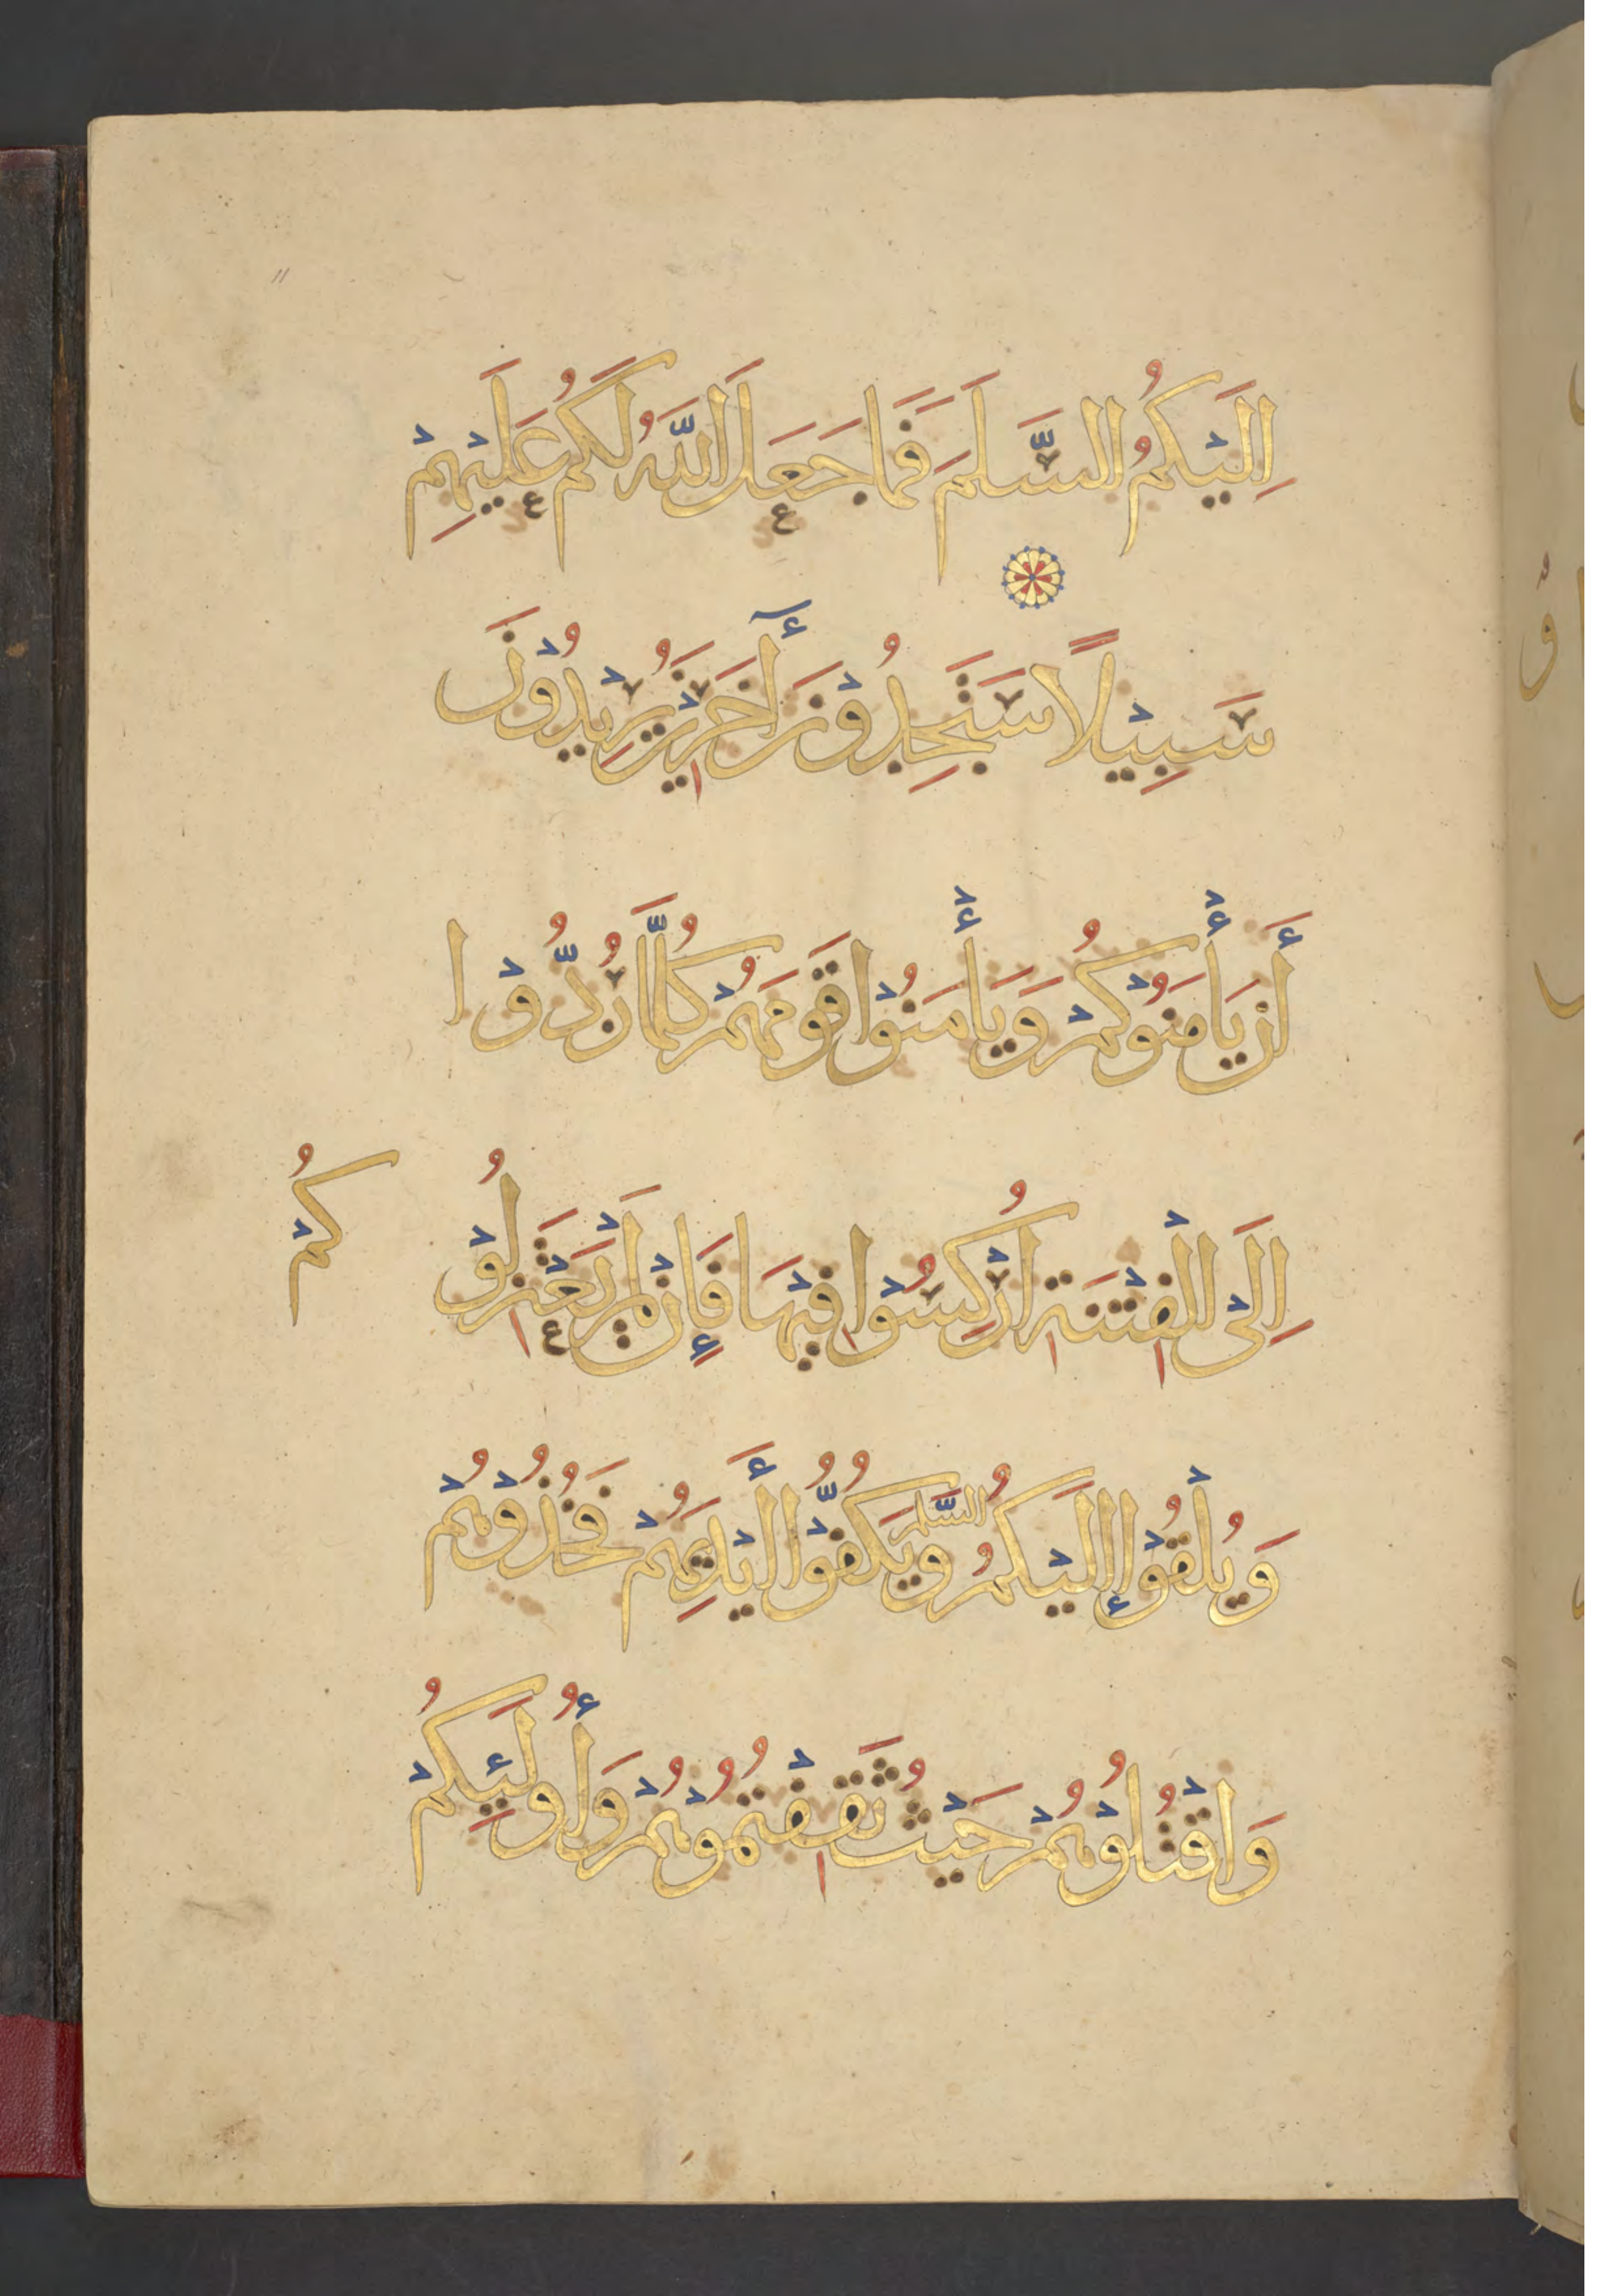 اِلَيْكُمُ السَّلَمَ فَمَا جَعَلَ اللّٰهُ لَكُمْ عَلَيْهِمْ
سَبِيْلًا سَتَجِدُوْنَ أَخَرِيْنَ يُرِيْدُوْنَ
أَنْ يَأْمَنُوْكُمْ وَيَأْمَنُوْا قَوْمَهُمْ كُلَّمَا رُدُّوْا
اِلَى الْفِتْنَةِ ارْكِسُوْا فِيْهَا فَإِنْ لَمْ يَعْتَزِلُوْكُمْ
وَيُلْقُوْا إِلَيْكُمُ السَّلَمَ وَيَكُفُّوْا أَيْدِيَهُمْ فَخُذُوْهُمْ
وَاقْتُلُوْهُمْ حَيْثُ ثَقِفْتُمُوْهُمْ وَأُولَئِكُمْ